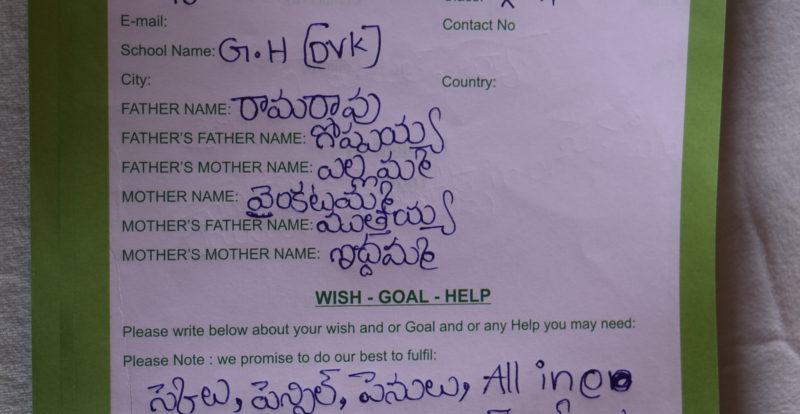 E-mail: Contact No
School Name: G.H (DVK)
City: Country:
FATHER NAME: రామారావు
FATHER'S FATHER NAME: గోప్పయ్య
FATHER'S MOTHER NAME: ఎల్లమ్మ
MOTHER NAME: వెంకటమ్మ
MOTHER'S FATHER NAME: ముత్తయ్య
MOTHER'S MOTHER NAME:
WISH - GOAL - HELP
Please write below about your wish and or Goal and or any Help you may need:
Please Note : we promise to do our best to fulfil:
పెన్సిల్, పెనులు, All in